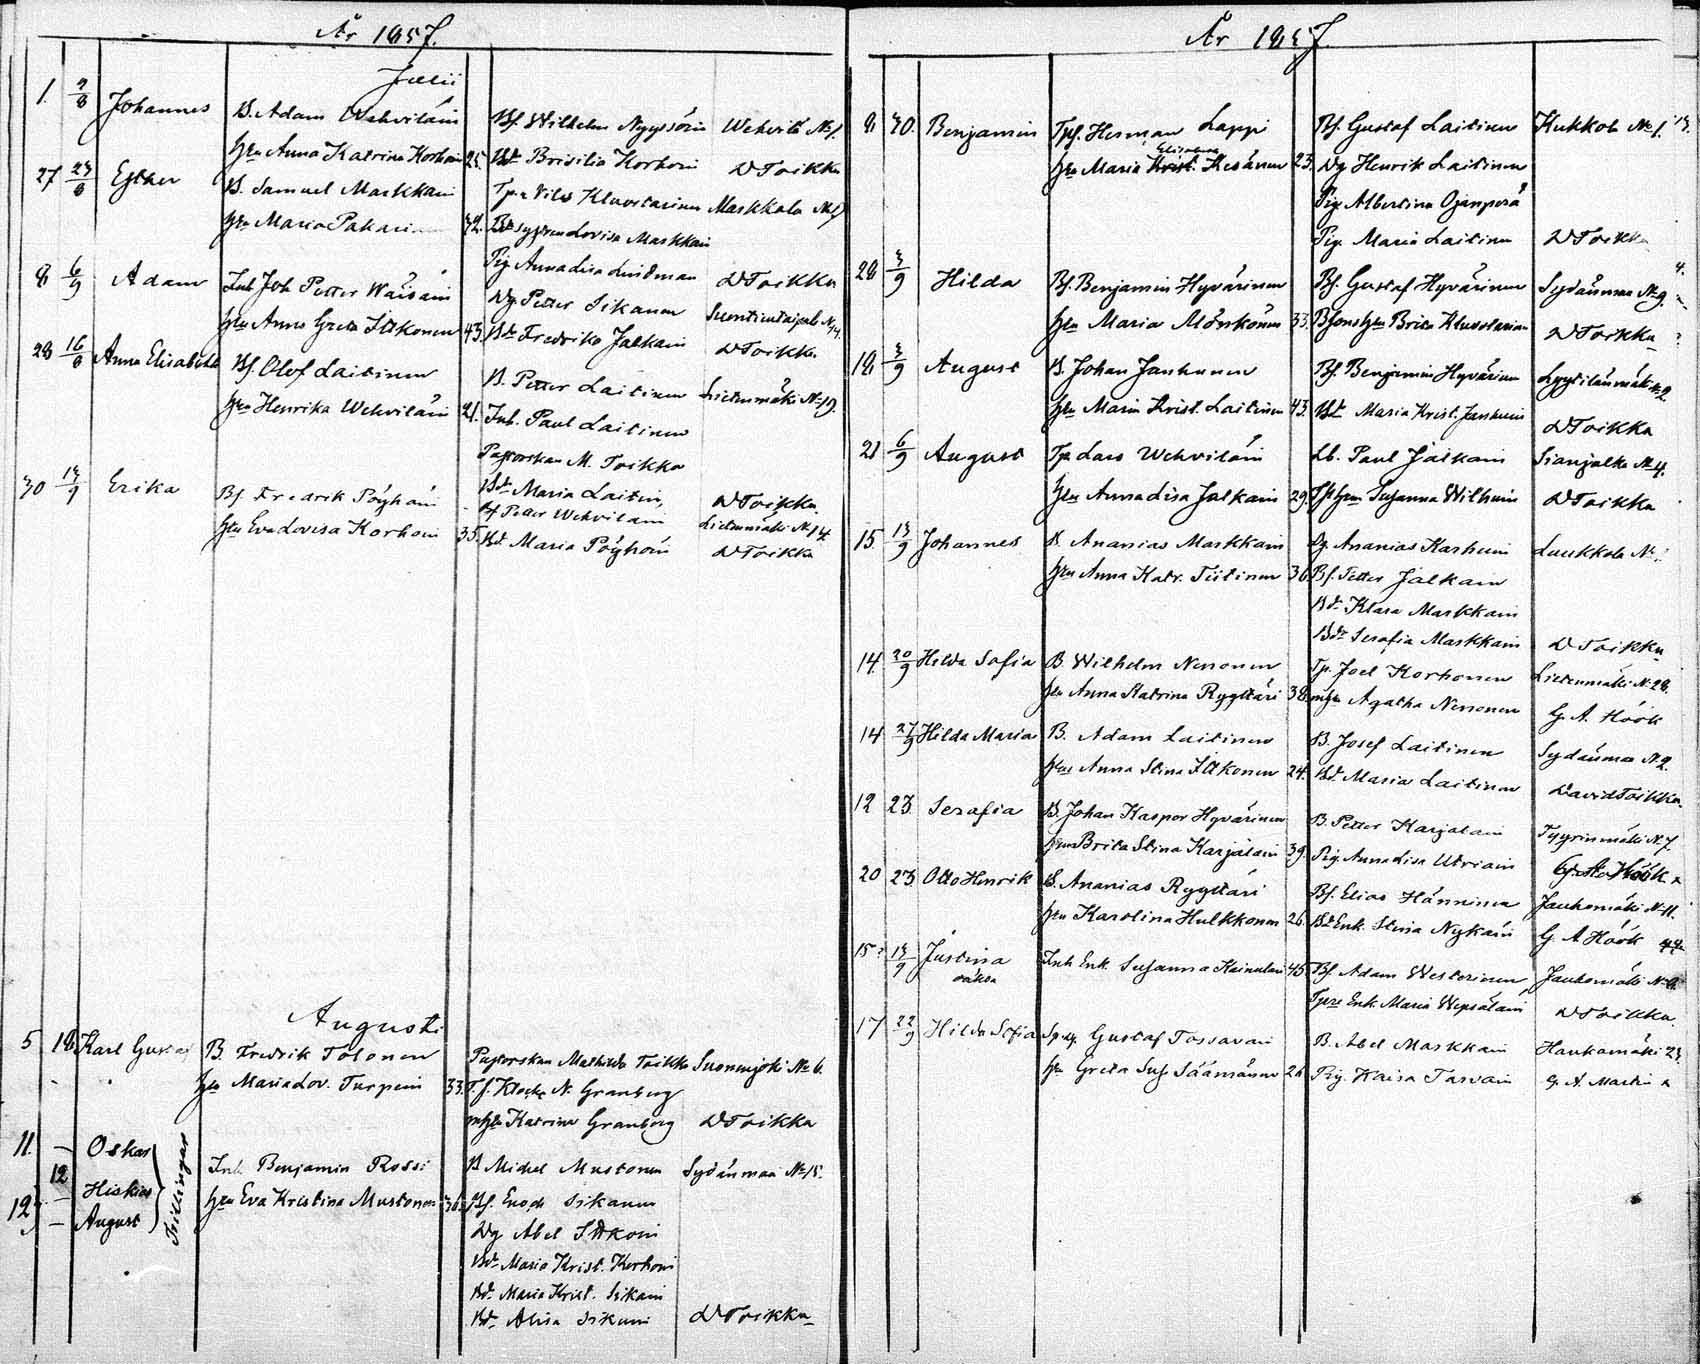 År 1857.
Julii
1. 2/8 Johannes B. Adam Wehviläin Bf. Wilhelm Nyyssöin Wehvilä No 1.
hru Anna Katrina Korhoin 25. Bdr Brisilia Korhoin D Toikka
27 23/8 Esther B. Samuel Markkain Tp. Nils Kluvstarinen Markkala No 1
hru Maria Pakari 32. Lovisa Markkain
Pig Anna Lisa Lindman D Toikka
8 6/9 Adam Inh Joh Petter Wäisäin Dg. Petter Sikanen Suontientaipale No 4.
hru Anna Greta Itkonen 43. Bdr Fredrika Jalkain D Toikka
28 16/8 Anna Elisabeth Bf. Olof Laitinen B. Petter Laitinen Lietenmäki No 19.
hru Henrika Wehviläin 21. Inh. Paul Laitinen
Pastorskan M. Toikka
Bdr Maria Laitin, D Toikka
30 13/9 Erika Bf. Fredrik Pöyhöin Bf Petter Wehviläin Lietenmäki No 14
hru Eva Lovisa Korhoin 35. Bdr. Maria Pöyhöin D Toikka
Augusti
5 18 Karl Gustaf B. Fredrik Tolonen Pastorskan Mathilda Toikka Suonenjoki No 6.
hru Maria Lov. Turpein 33. T. f. Klock. N. Granberg
mhru Katrina Granberg D Toikka
11. — Oskar Inh. Benjamin Rossi B Michel Mustonen Sydänmaa No 15.
12 Hiskias hru Eva Kristina Mustonen 36. Bf. Enoch Sikanen
12 — August Trillingar Dg Abel Itkoin
Bdr Maria Krist. Korhoin
Bdr. Maria Krist. Sikain
Bdr Alisa Sikain D Toikka
År 1857.
8 30. Benjamin Tpf. Herman Lappi Bf. Gustaf Laitinen Kukkola No 1.
Elisabeth
hru Maria Krist. Kesänen 23. Dg Henrik Laitinen
Pig. Albertina Ojanperä
Pig. Maria Laitinen D Toikka
28 3/9 Hilda Bf. Benjamin Hyvärinen Bf. Gustaf Hyvärinen Sydänmaa No 9.
hru Maria Mönkönen 33. Bfons hru Brita Kluvstarinen D Toikka
18 3/9 August B. Johan Janhunen Bf. Benjamin Hyvärinen Lyytilänmäki No 2
hru Maria Krist. Laitinen 43. Bdr Maria Krist. Janhuin D Toikka
21 6/9 August Tp Lars Wehviläin Lb. Paul Jalkain Sianjalka No 4.
hru Anna Lisa Jalkain 29. hru Susanna Wilhuin D Toikka
15. 13/9 Johannes B. Ananias Markkain Dg. Ananias Karhuin Laukkala No
hru Anna Katr. Tiitinen 36 Bf. Petter Jalkain
Bdr Klara Markkain
Bdr Serafia Markkain D Toikka
14. 20/9 Hilda Sofia B Wilhelm Nenonen Tp. Joel Korhonen Lietenmäki No 28.
hru Anna Katrina Ryyttäri 38. mhru Agatha Nenonen G. A. Höök
14 27/9 Hilda Maria B. Adam Laitinen B. Josef Laitinen Sydänmaa No 2.
hru Anna Stina Itkonen 24. Bdr. Maria Laitinen David Toikka
12 23 Serafia B. Johan Kaspar Hyvärinen B. Petter Karjalain Tyyrinmäki No 7.
hru Brita Stina Karjalain 39. Pig. Anna Lisa Utriain G. A. Höök
20 23 Otto Henrik B. Ananias Ryyttäri Bf. Elias Hänninen Jauhomäki No 11.
hru Karolina Hulkkonen 26. Bdr Enk. Stina Nykäin G. A Höök
15 13/9 Justina oäkta Inh Enk. Susanna Kainulain 45. Bf. Adam Westerinen Jauhomäki No 6.
Enk. Maria Wepsäläin D Toikka.
17 22/9 Hilda Sofia Gustaf Tossavain B. Abel Markkain Haukamäki 23
hru Greta Sus Säämänen 26 Pig. Kaisa Tarvain G. A. Martin